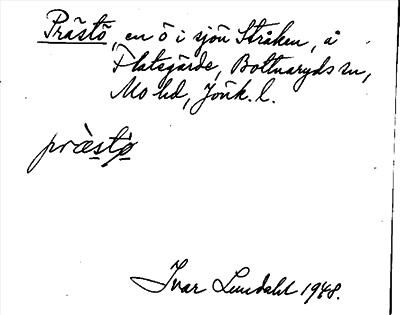 Prästö, en ö i sjön Stråken, å
Flatsgärde, Bottnaryds sn,
Mo hd, Jönk. l.
præstø
Ivar Lundahl 1948.